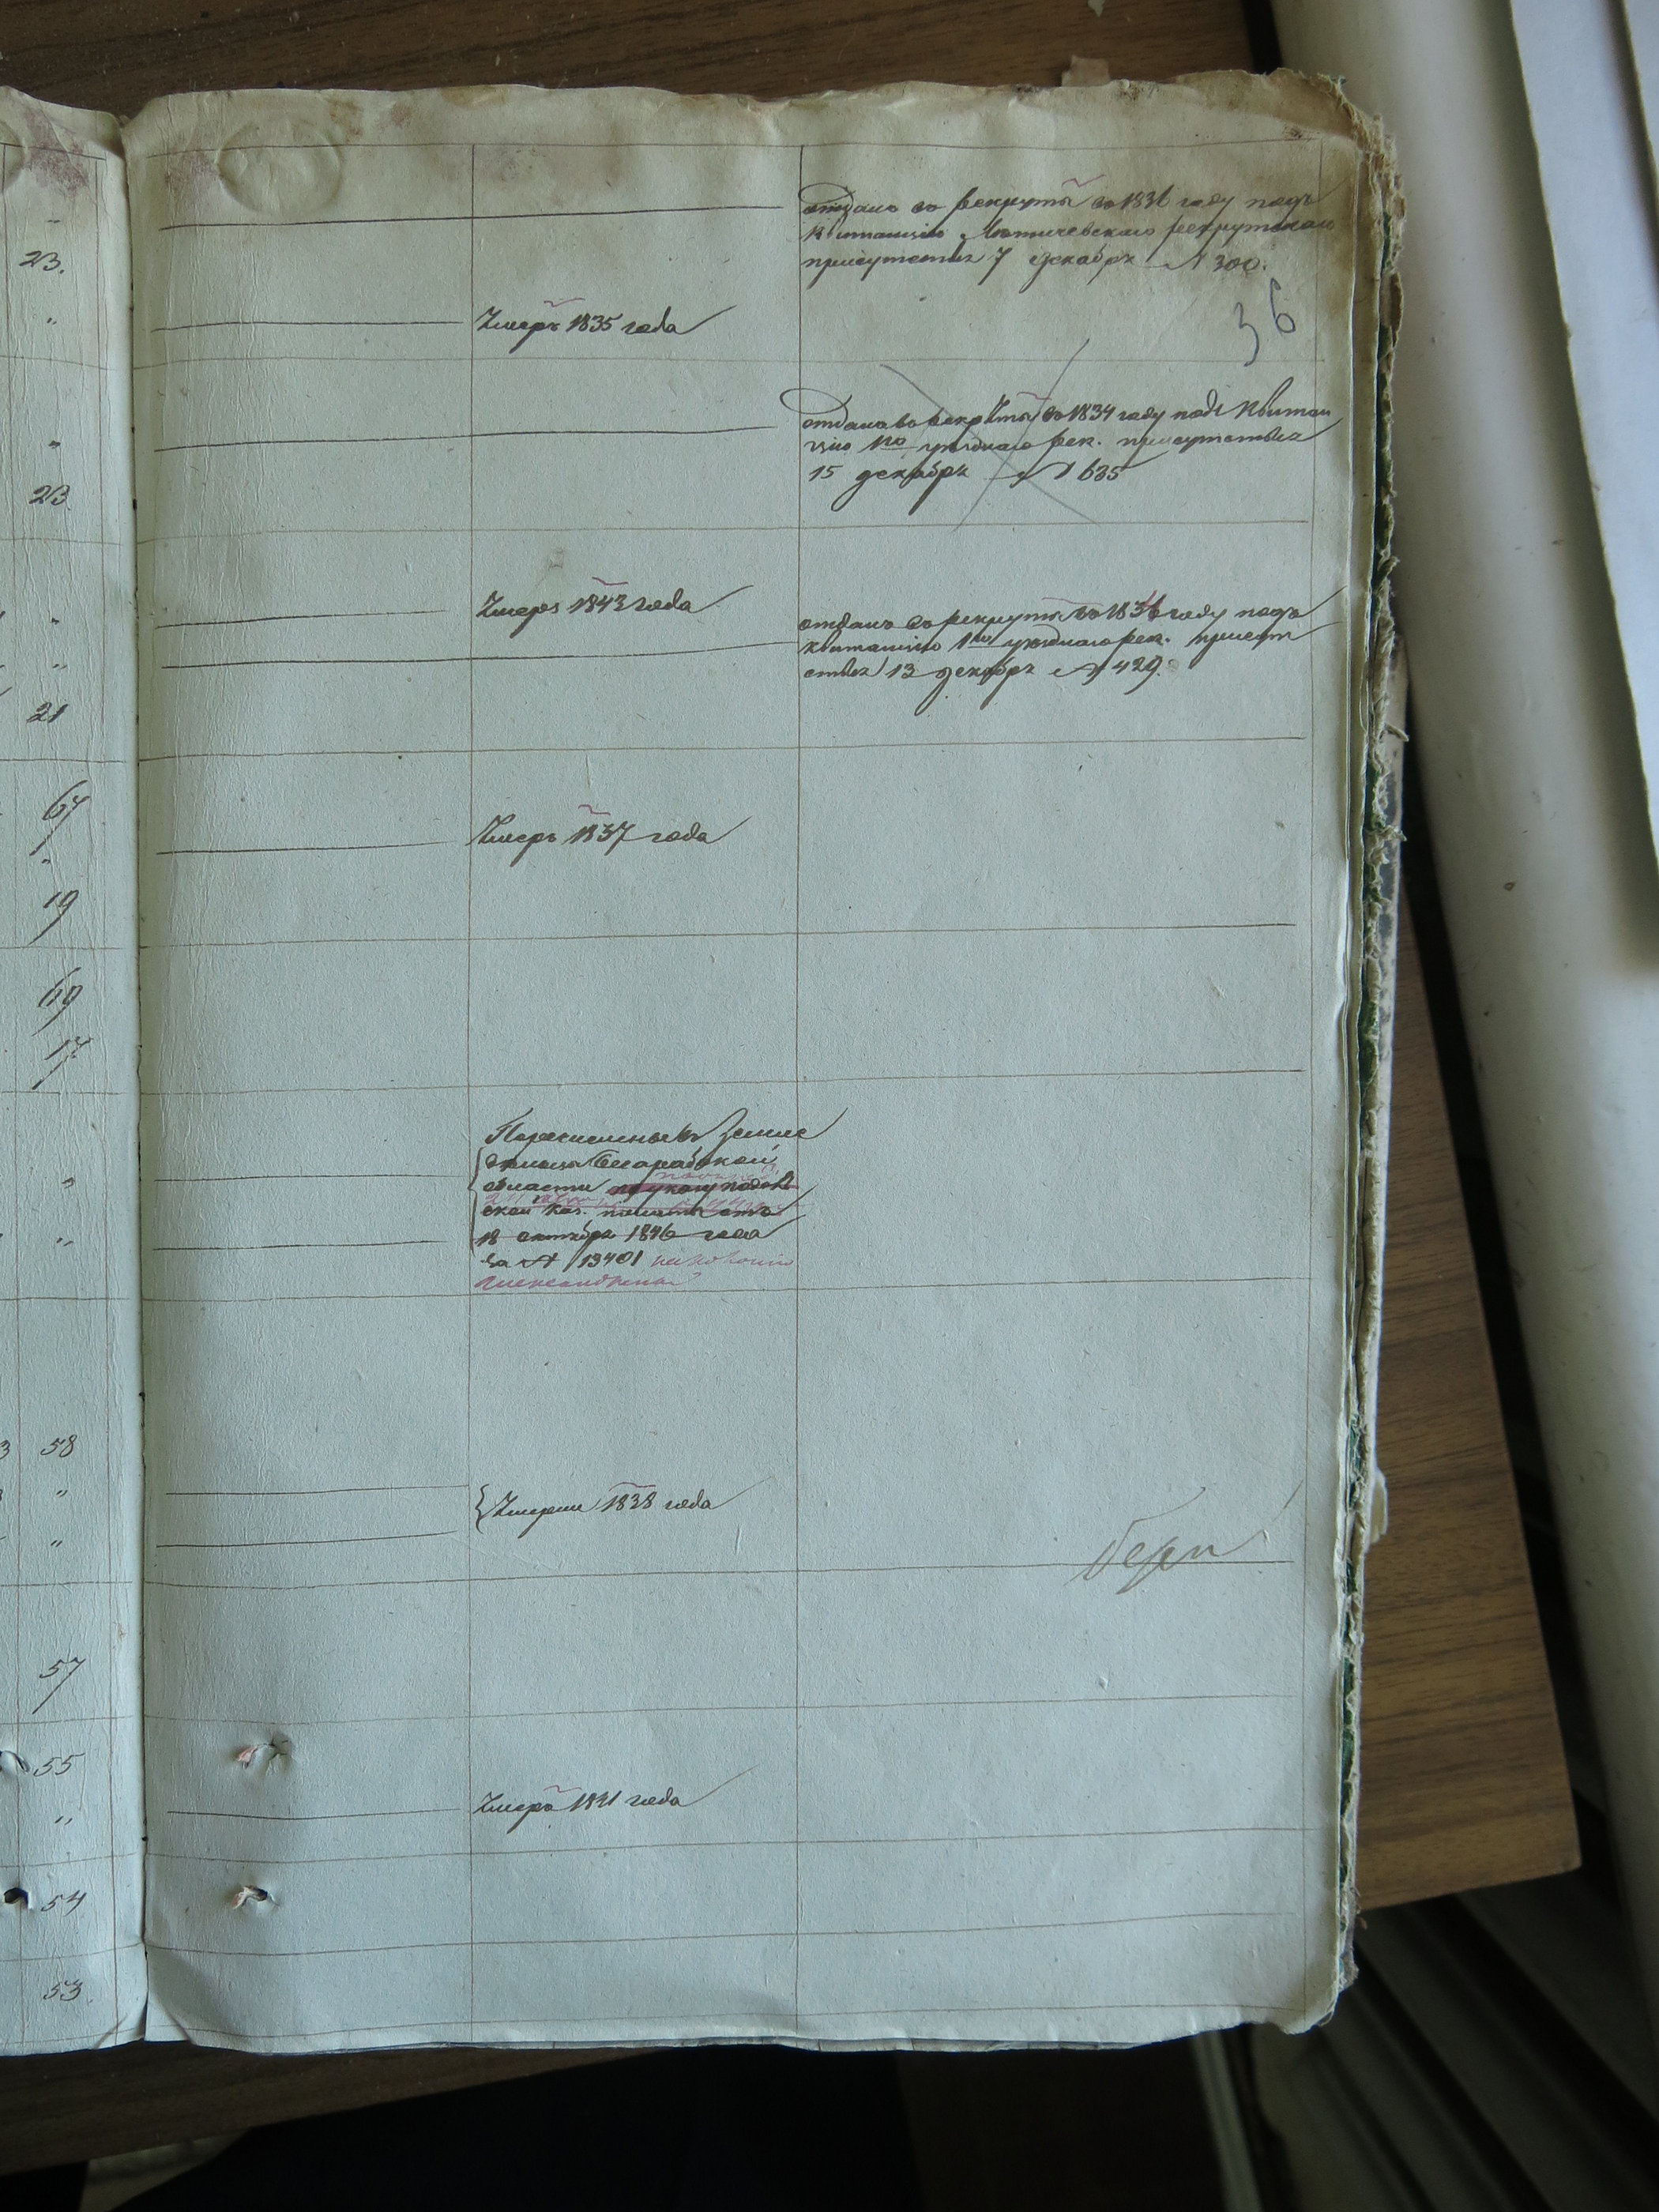 23.
"
"
23
"
"
21
67
"
19
69
17
"
"
58
"
"
57
55
"
54
53.
отданъ въ рекруты въ 1836 году подъ
квитанцію Летичевскаго рекрутскаго
присутствія 7 декабря № 300.
36
Умеръ 1835 года
отданъ въ рекруты въ 1834 году подъ квитан
цію 1го уѣзднаго рек. присутствія
15 декабря № 635
Умеръ 1843 года
отданъ въ рекруты въ 1836 году подъ
квитанцію 1го уѣзднаго рек. присут
ствія 13 декабря № 429.
Умеръ 1837 года
Перечисленные въ Земле
дѣльцы Бесарабской
области по указу подоль
ской каз. палаты отъ
18 октября 1846 года
за № 13401 на колонію
Александрены
Умерли 1838 года
Умеръ 1841 года